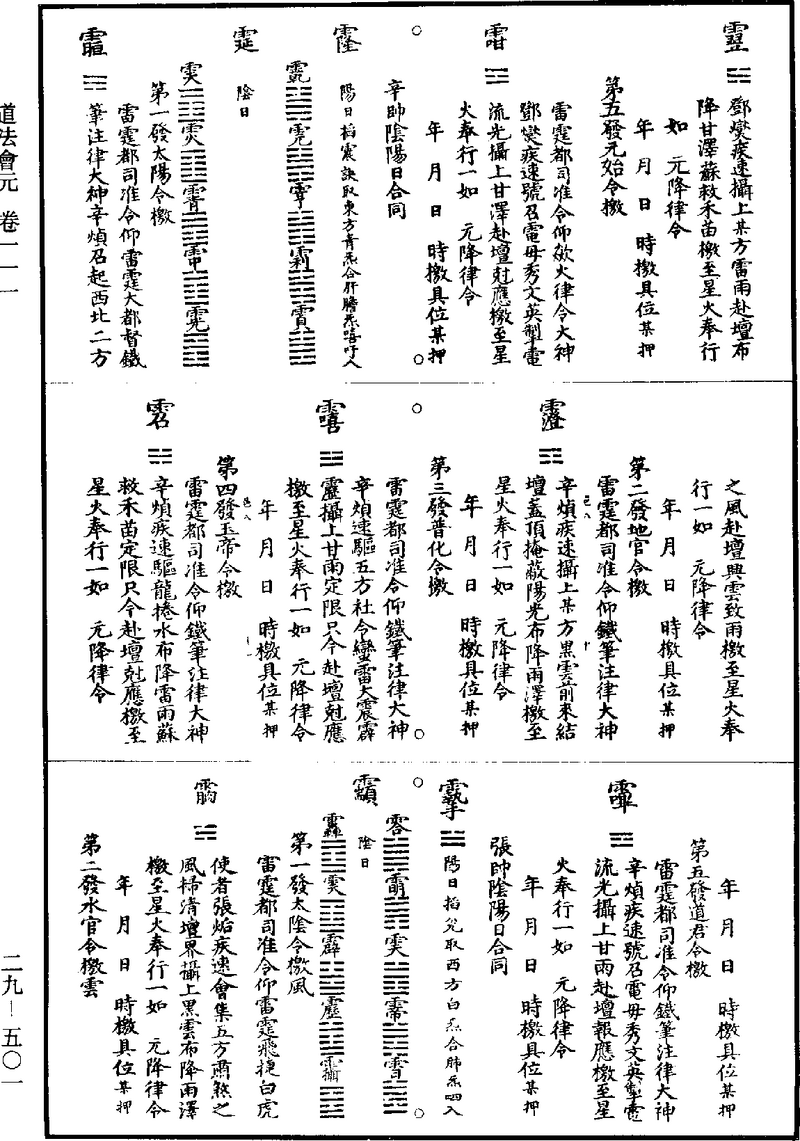 鄧燮疾速攝上某方雷雨赴壇布
降甘澤蘇救禾苗檄至星火奉行
如　元降律令
年　月　日　時檄具位某押
第五發元始令檄
雷霆都司准令仰欻火律令大神
鄧燮疾速號召電母秀文英掣電
流光攝上甘澤赴壇尅應檄至星
火奉行一如　元降律令
年　月　日　時檄具位某押
辛帥陰陽日合同
陽日掐震訣取東方青炁合肝膽炁嘻吁入
陰日
第一發太陽令檄
雷霆都司准令仰雷霆大都督鐵
筆注律大神辛煩召起西北二方
之風赴壇興雲致雨檄至星火奉
行一如　元降律令
年　月　日　時檄具位某押
第二發地官令檄
雷霆都司准令仰鐵筆注律大神
辛煩疾速攝上某方黑雲前來結
壇蓋頂掩蔽陽光布降雨澤檄至
星火奉行一如　元降律令
年　月　日　時檄具位某押
第三發普化令檄
雷霆都司准令仰鐵筆注律大神
辛煩速驅五方社令蠻雷大震霹
靂攝上甘雨定限只今赴壇尅應
檄至星火奉行一如　元降律令
年　月　日　時檄具位某押
第四發玉帝令檄
雷霆都司准令仰鐵筆注律大神
辛煩疾速驅龍捲水布降雷雨蘇
救禾苗定限只今赴壇尅應檄至
星火奉行一如　元降律令
年　月　日　時檄具位某押
第五發道君令檄
雷霆都司准令仰鐵筆注律大神
辛煩疾速號召電母秀文英掣電
流光攝上甘雨赴壇報應檄至星
火奉行一如　元降律令
年　月　日　時檄具位某押
張帥陰陽日合同
陽日掐兌取西方白炁合肺炁呬入
陰日
第一發太陰令檄風
雷霆都司准令仰雷霆飛捷白虎
使者張焰疾速會集五方肅煞之
風掃清壇界攝上黑雲布降雨澤
檄至星火奉行一如　元降律令
年　月　日　時檄具位某押
第二發水官令檄雲
道法會元　卷一一一
二九—五〇一